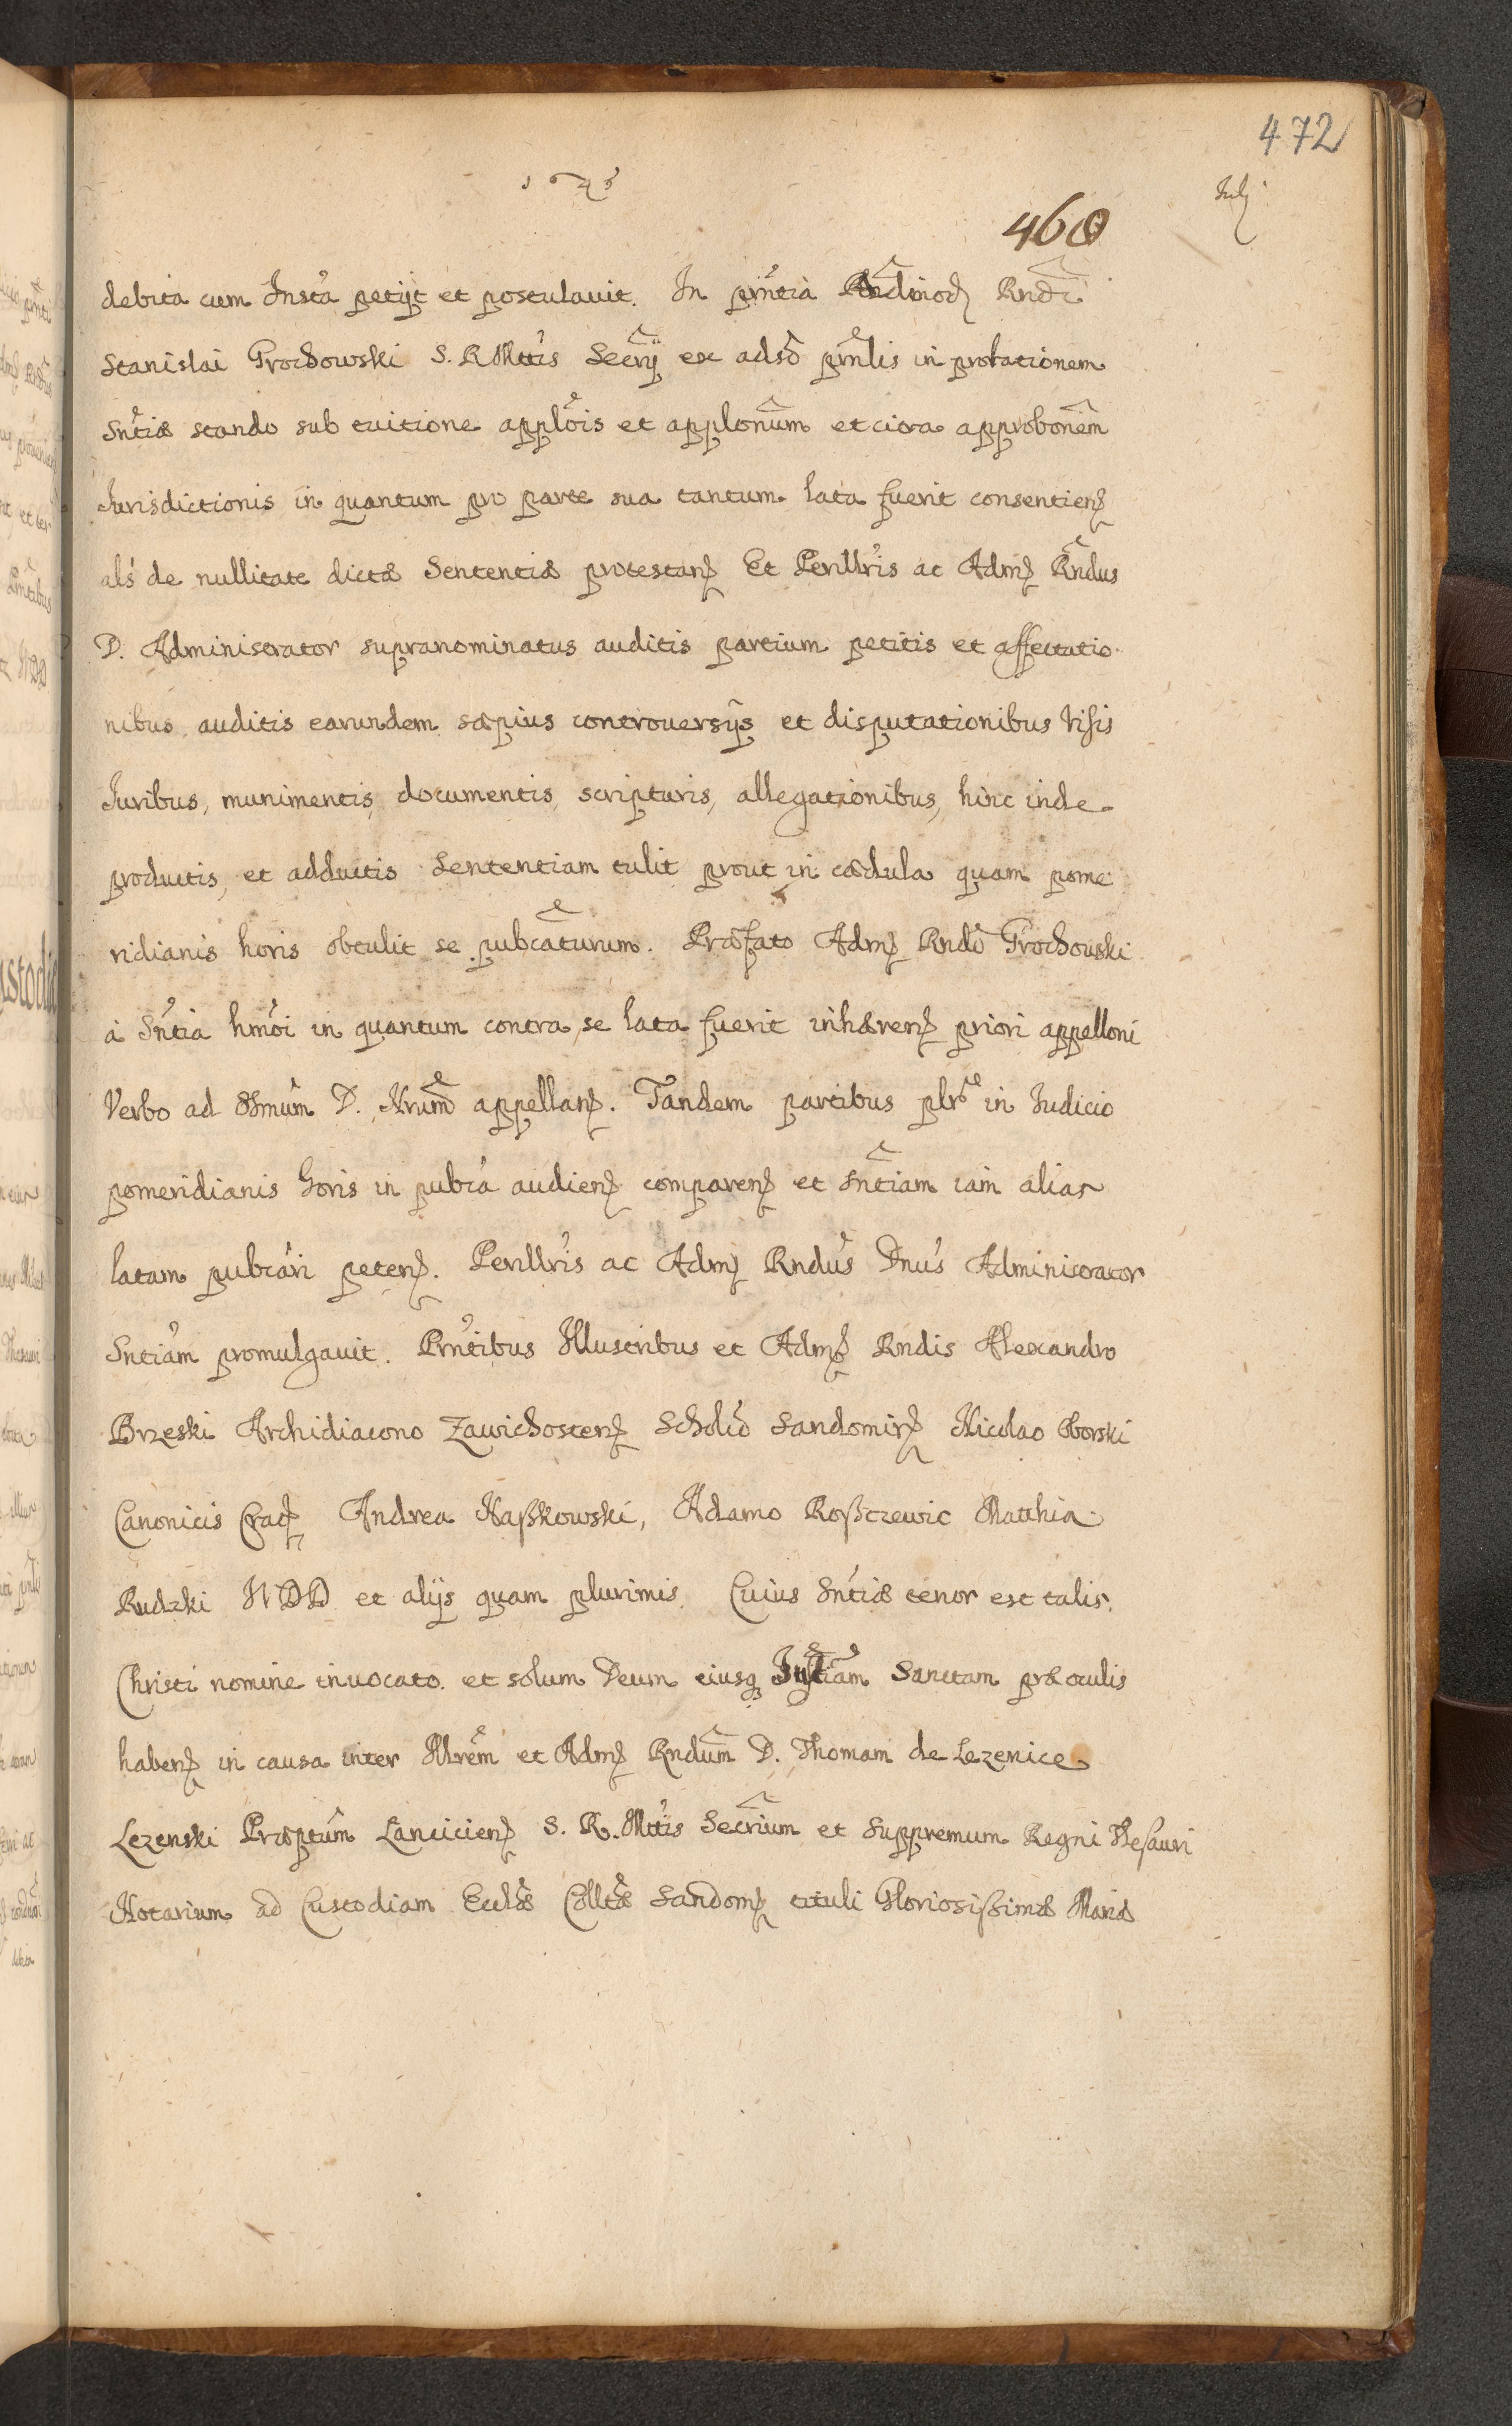 472
1643
July
460
debita cum Insta petijt et postulauit. In pñtia Rndi
Stanislai Grochowski S. R Mttis Secrij ex adso pñlis in prolationem
Sntiæ stando sub tuitione applois et applonum et citra approbonem
Jurisdictionis in quantum pro parte sua tantum lata fuerit consentien
als de nullitate dictæ Sententiæ protestan Et Perillris ac Adm Rndus
D. Administrator supranominatus auditis partium petitis et affectatio
nibus auditis earundem sæpius controuersijs et disputationibus Visis
Juribus, munimentis, documentis, scripturis, allegationibus, hinc inde
productis, et adductis Sententiam tulit prout in cædula quam pome
ridianis horis obtulit se pubcaturum. Præfato Adm Rndo Grochowski
à Sntia hmoi in quantum contra se lata fuerit inhæren priori appelloni
Verbo ad Illmum D. Nrum appellan. Tandem partibus plr in Iudicio
pomeridianis horis in pubca audien comparen et Sntiam iam alias
latam pubcari peten. Perillris ac Adm Rndus Dnus Administrator
Sntiam promulgauit. Prntibus Illustribus et Adm Rndis Alexandro
Brzeski Archidiacono Zawichosten Scholco Sandomir Nicolao Oborski
Canonicis Crac Andrea Naßkowski, Adamo Roßczewic Matthia
Rudzki NDD et alijs quam plurimis. Cuius Sntiæ tenor est talis.
Christi nomine inuocato et solum Deum eiusq Justiam Sanctam præ oculis
haben in causa inter Illrem et Adm Rndum D. Thomam de Lezenice
Lezenski Præptum Lancicien S. R. Mttis Secrium et Suppremum Regni Thesauri
Notarium ad Custodiam Ecclæ Colltæ Sandom tituli Gloriosißimæ Mariæ